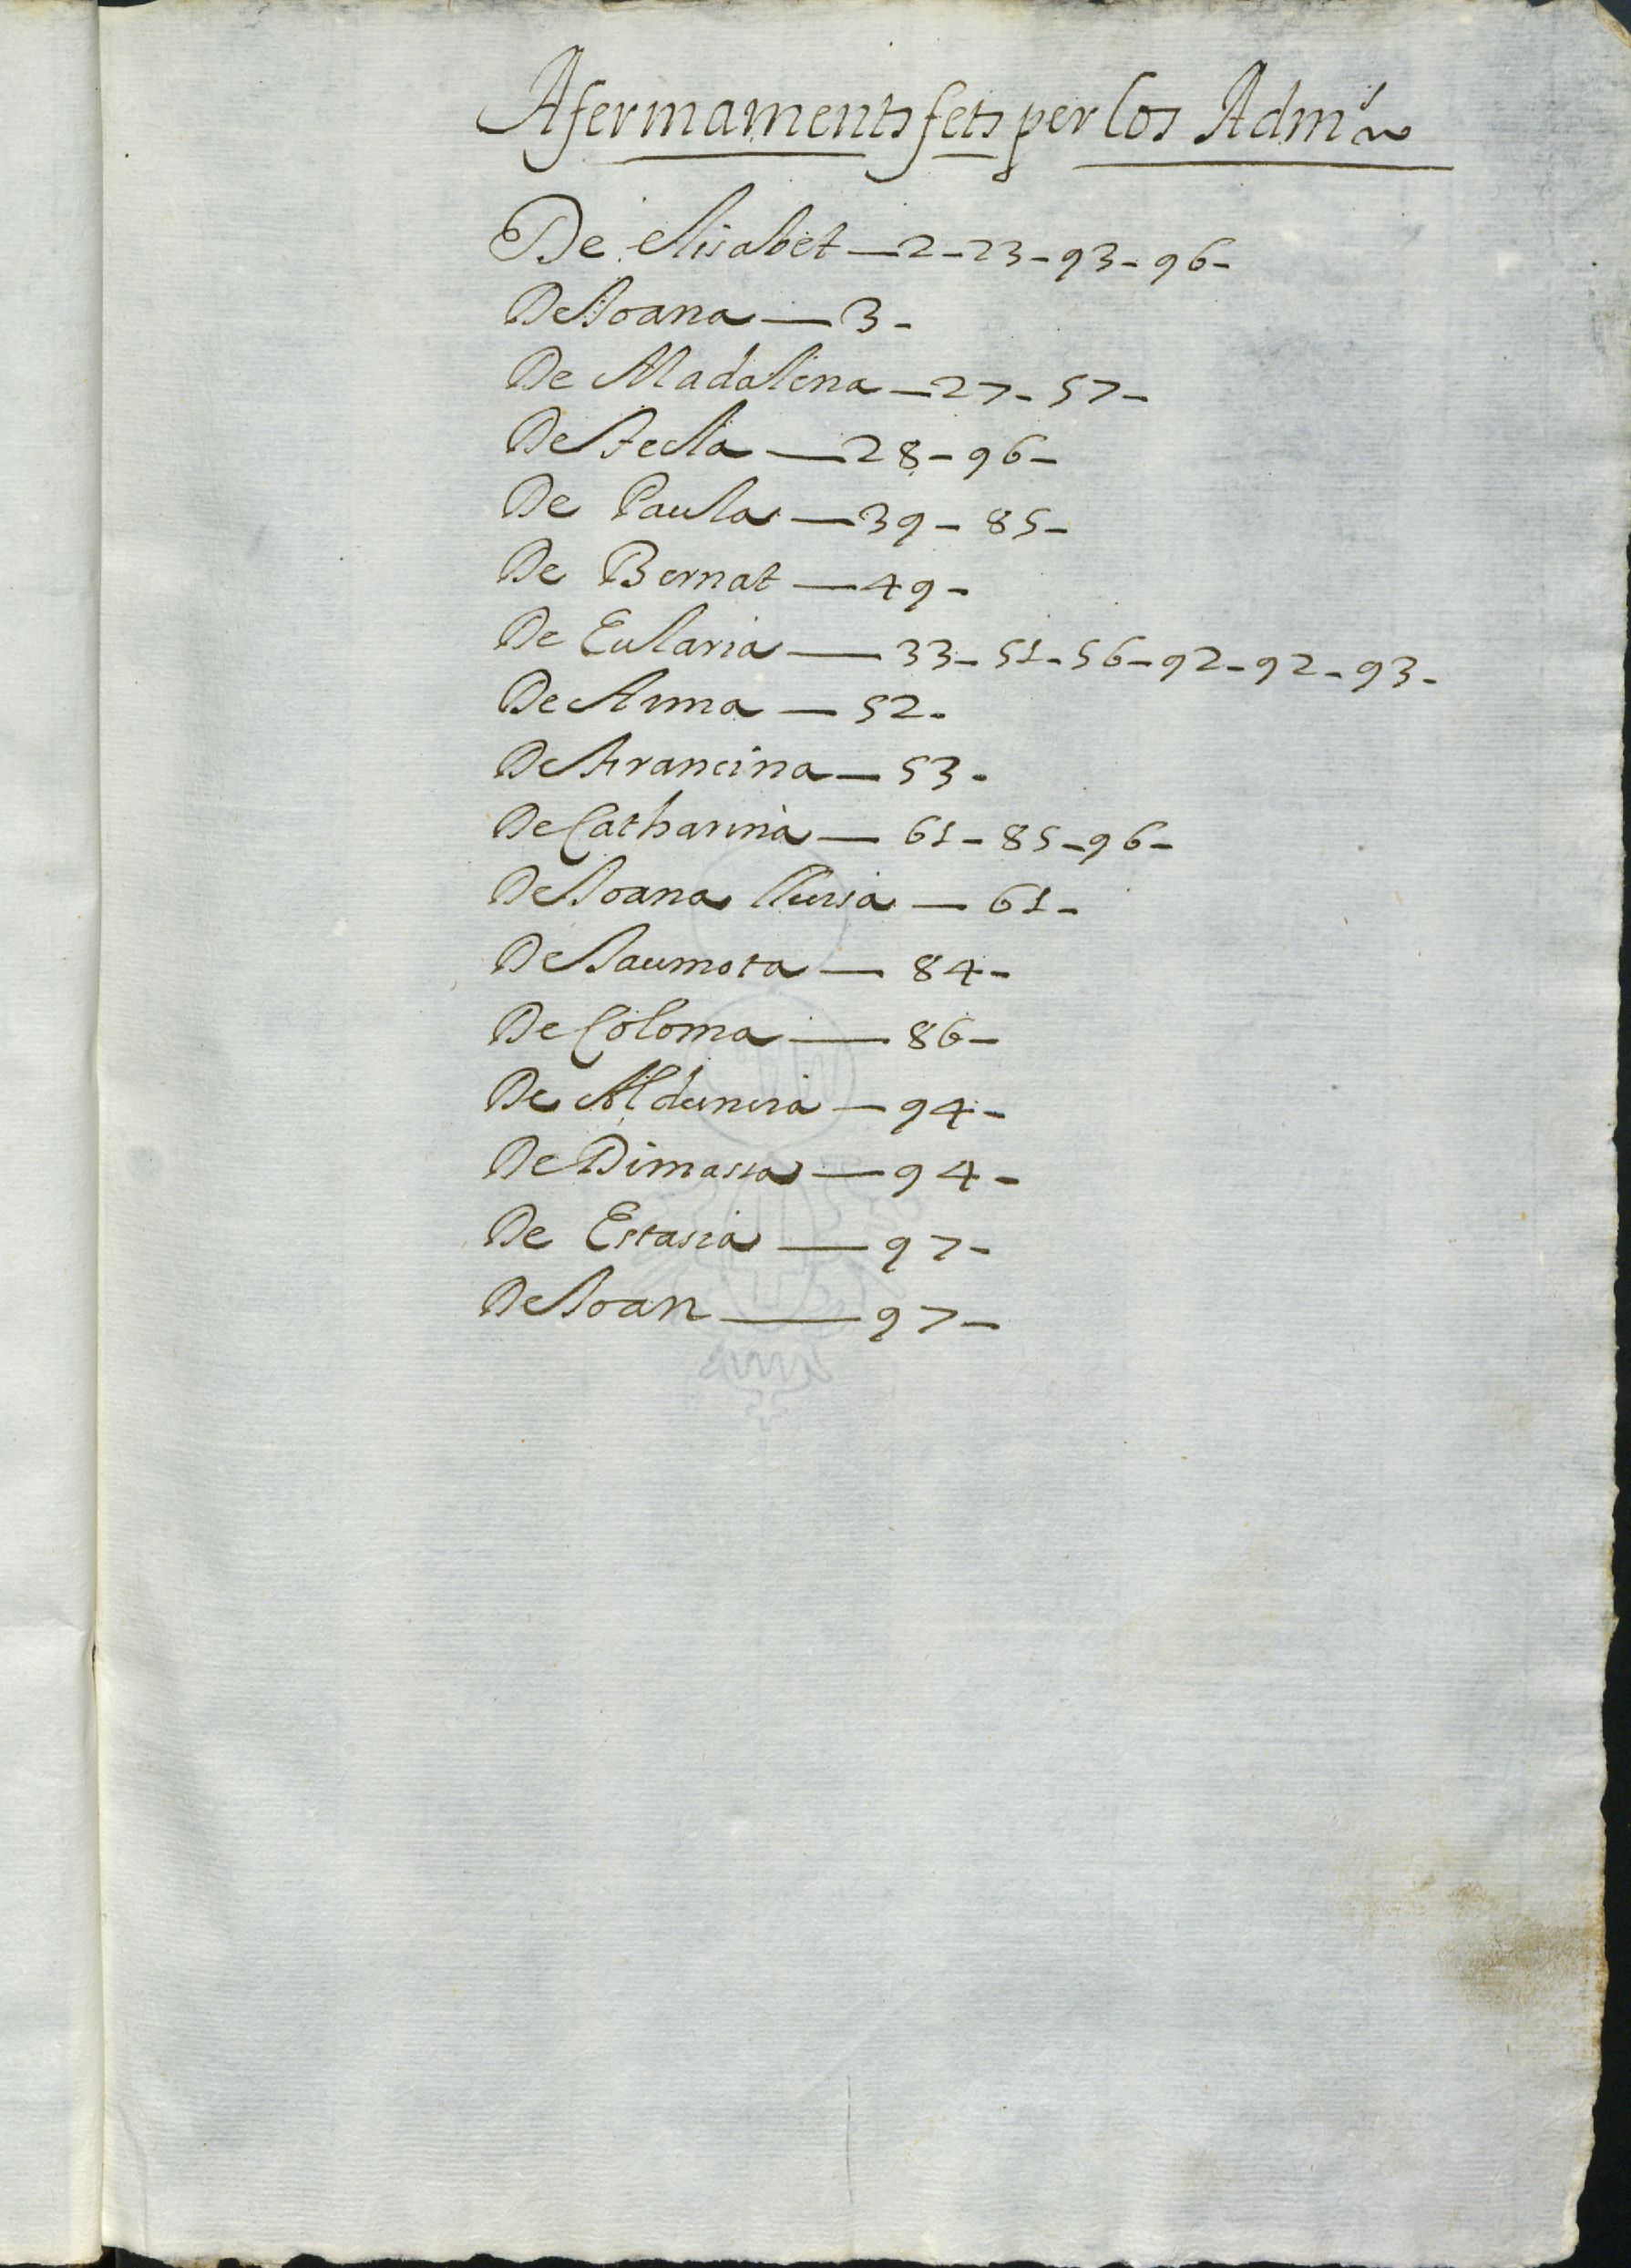 Afermaments fets per los Adm.rs
De Elisabet — 2 - 23 - 93 - 96 -
De Joana — 3 -
De Madalena — 27 - 57 -
De Tecla — 28 - 96 -
De Paula — 39 - 85 -
De Bernat — 49 -
De Eularia — 33 - 51 - 56 - 92 - 92 - 93 -
De Anna — 52 -
De Francina — 53 -
De Catharina — 61 - 85 - 96 -
De Joana Llusia — 61 -
De Jaumota — 84 -
De Coloma — 86 -
De Aldunsia — 94 -
De Dimassa — 94 -
De Estasia — 97 -
De Joan — 97 -